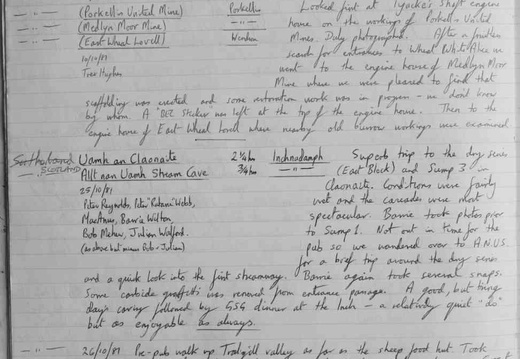 -"- (Porkellis United Mine) Porkellis Looked first at Tyacke's Shaft engine
-"- (Medlyn Moor Mine) -"- house on the workings of Porkellis United
-"- (East Wheal Lovell) Wendron Mines. Duly photographed. After a fruitless
10/10/81 search for entrances to Wheal White Alice we
Trev Hughes went to the engine house of Medlyn Moor
Mine where we were pleased to find that
scaffolding was erected and some restoration work was in progress - we don't know
by whom. A sticker was left at the top of the engine house. Then to the
engine house of East Wheal Lovell where nearby old narrow workings were examined.
Sutherland Uamh an Claonaite 2 1/4 hr Inchnadamph Superb trip to the dry series
SCOTLAND Allt nan Uamh Stream Cave 3/4 hr -"- (East Block) and Sump 3 in
25/10/81 Claonaite. Conditions were fairly
Peter Reynolds, Peter Webb, wet and the cascades were most
Barrie Wilton, spectacular. Barrie took photos prior
Bob Mehew, Julian Walford. to Sump 1. Not out in time for the
(as above but minus Bob + Julian) pub so we wandered over to A.N.U.S.
for a brief trip around the dry series
and a quick look into the first streamway. Barrie again took several snaps.
Some carbide graffiti was removed from entrance passage. A good, but tiring
days caving followed by GSG dinner at the Inch - a relatively quiet "do"
but as enjoyable as always.
-"- 26/10/81 Pre-pub walk up Traligill valley as far as the sheep food hut. Took